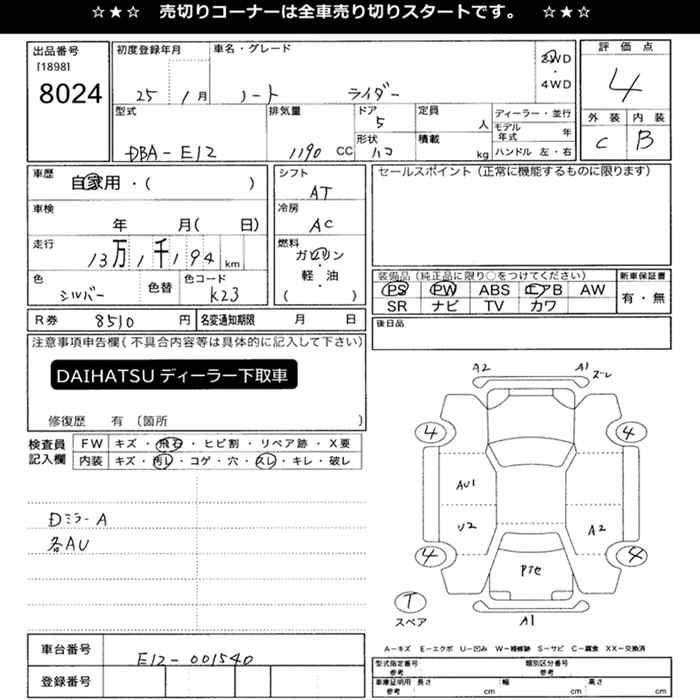 ☆★☆ 売切りコーナーは全車売り切りスタートです。 ☆★☆
出品番号
[1898]
8024
初度登録年月
25 1月
車名・グレード
ノート ライダー
2WD
・
4WD
評価点
4
外装 内装
C B
型式
DBA-E12
排気量
1190 CC
ドア
5
形状
ハコ
定員
人
積載
kg
ディーラー・並行
モデル年式 年
ハンドル 左・右
車歴
自家用・( )
車検
年 月( 日)
走行
13万1千194km
色
シルバー
色替
色コード
K23
シフト
AT
冷房
AC
燃料
ガソリン
・
軽・油
( )
セールスポイント(正常に機能するものに限ります)
装備品(純正品に限り○をつけてください)
PS PW ABS エアB AW
SR ナビ TV カワ
新車保証書
有・無
後日品
R券 8510 円
名変通知期限 月 日
注意事項申告欄(不具合内容等は具体的に記入して下さい)
DAIHATSU ディーラー下取車
修復歴 有(箇所 )
検査員
記入欄
FW キズ・飛石・ヒビ割・リペア跡・X要
内装 キズ・汚レ・コゲ・穴・スレ・キレ・破レ
Dミラー A
各AU
A2 A1 ズレ
4 4
AU1
U2 A2
4 4
PTe
T
スペア
A1
A-キズ E-エクボ U-凹み W-補修跡 S-サビ C-腐食 XX-交換済
車台番号
E12-001540
登録番号
型式指定番号
参考
類別区分番号
参考
車庫証明用
参考
長さ cm 幅 cm 高さ cm